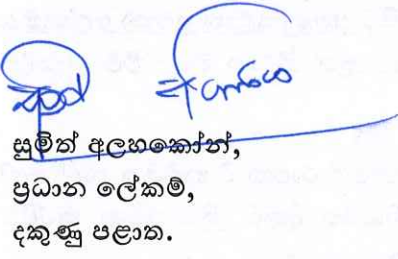 සුමිත් අලහකෝන්,
ප්‍රධාන ලේකම්,
දකුණු පළාත.